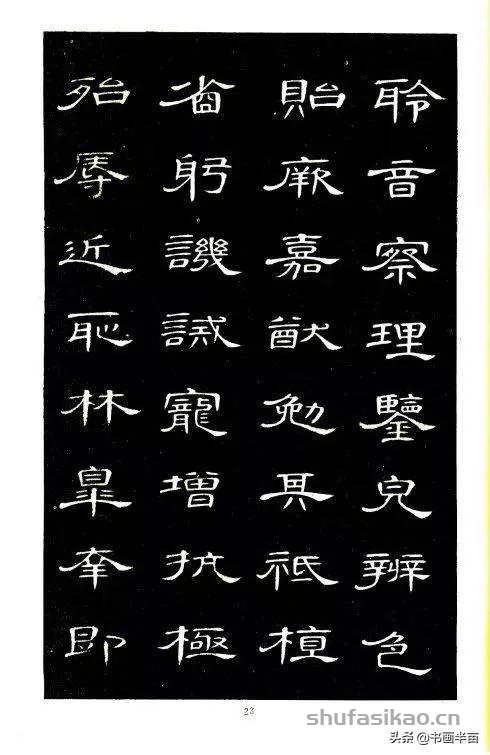 聆音察理鑒皃辨色
貽厥嘉猷勉其祗植
省躬譏誡寵增抗極
殆辱近恥林皋幸即
23
shufasikao.cn
头条@书画半亩